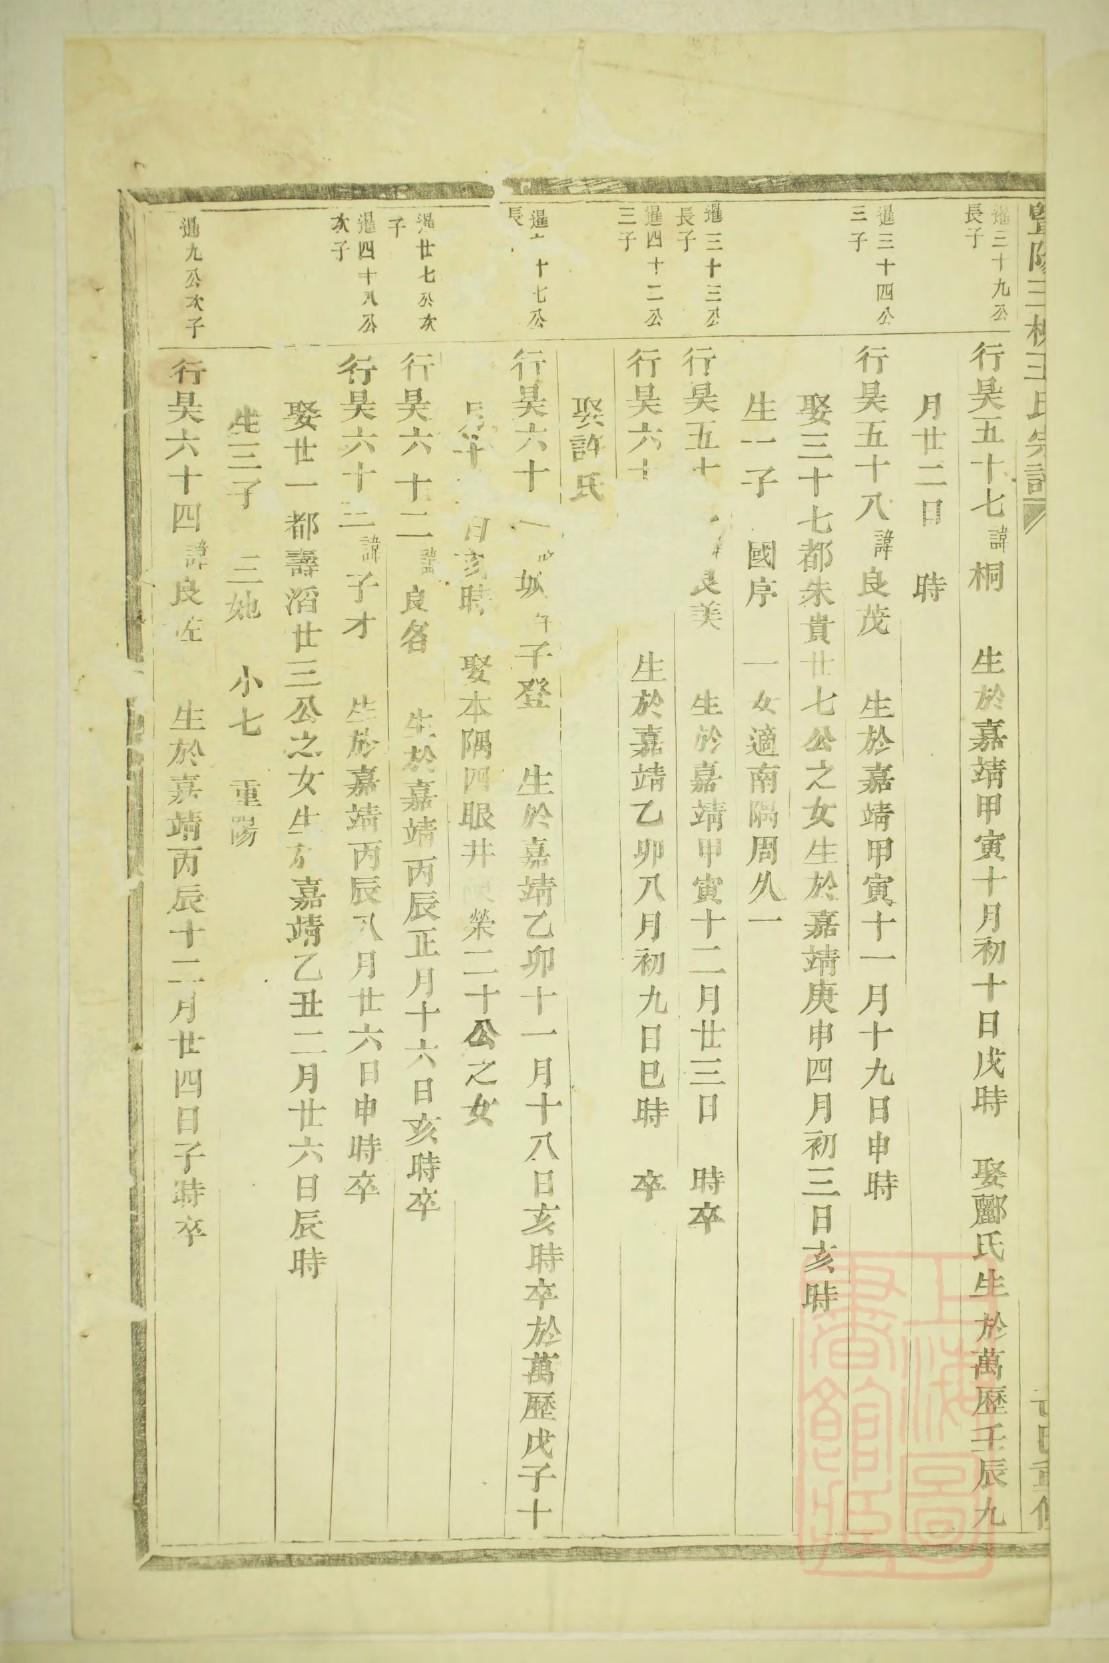 暨陽三橋王氏宗譜
三十九公
長子
行昊五十七諱桐 生於嘉靖甲寅十月初十日戌時 娶酈氏生於萬歷壬辰九
月廿二日 時
三十四公
三子
行昊五十八諱良茂 生於嘉靖甲寅十一月十九日申時
娶三十七都朱貴廿七公之女生於嘉靖庚申四月初三日亥時
生一子 國序 一女適南隅周久一
三十三公
長子
行昊五十 諱良美 生於嘉靖甲寅十二月廿三日 時卒
四十二公
三子
行昊六十 生於嘉靖乙卯八月初九日巳時 卒
娶許氏
十七公
長
行昊六十一 城 字子登 生於嘉靖乙卯十一月十八日亥時卒於萬歷戊子十
月 日亥時 娶本隅四眼井 榮二十公之女
廿七公次
子
行昊六十二諱良名 生於嘉靖丙辰正月十六日亥時卒
四十八公
次子
行昊六十三諱子才 生於嘉靖丙辰八月廿六日申時卒
娶廿一都壽滔廿三公之女生於嘉靖乙丑二月廿六日辰時
生三子 三 小七 重陽
九公次子
行昊六十四諱良左 生於嘉靖丙辰十二月廿四日子時卒
上海圖
書館藏